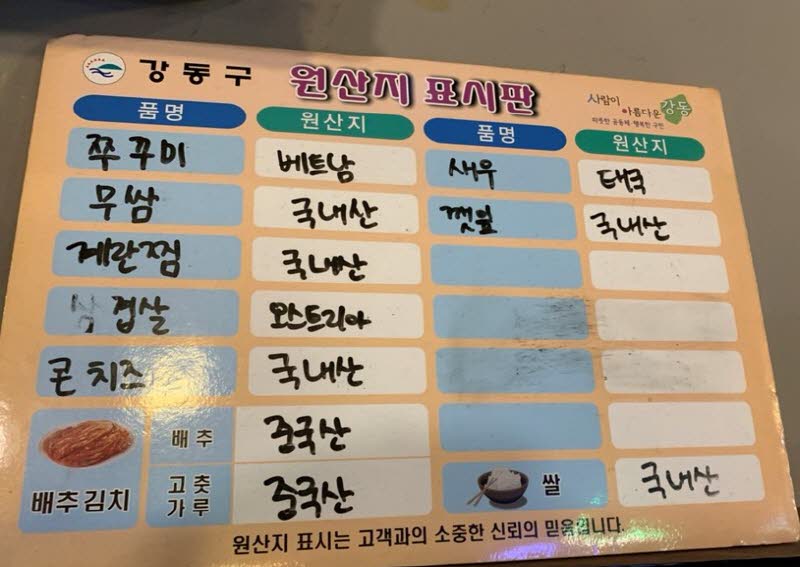 강동구 원산지 표시판
사람이
아름다운 강동
따뜻한 공동체·행복한 구민
품명 원산지 품명 원산지
쭈꾸미 베트남 새우 태국
무쌈 국내산 깻잎 국내산
계란찜 국내산
삼겹살 오스트리아
콘치즈 국내산
배추김치 배추 중국산
고춧가루 중국산 쌀 국내산
원산지 표시는 고객과의 소중한 신뢰의 믿음입니다.